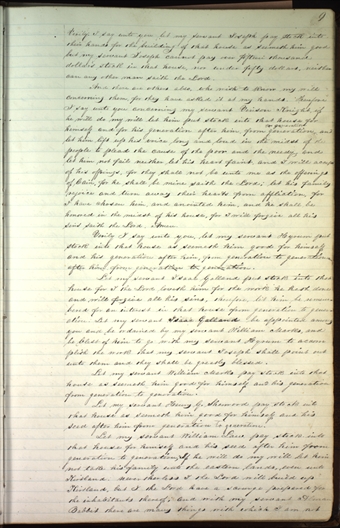 9
Verily I say unto you let my servant Joseph pay stock into
their hands for the building of that house as seemeth him good
but my servant Joseph cannot pay over fifteen thousand
dollars stock in that house, nor under fifty dollars, neither
can any other man saith the Lord.
And there are others also, who wish to know my will
concerning them for they have asked it at my hands. Therefore
I say unto you concerning my servant Vinson Knight if
he will do my will let him put stock into that house for
himself and for his generation after him, from generation to generation, and
let him lift up his voice long and loud in the midst of the
people to plead the cause of the poor and the needy, and
let him not fail neither let his heart faint, and I will accept
of his offerings, for they shall not be unto me as the offerings
of Cain, for he shall be mine saith the Lord, let his family
rejoice and turn away their hearts from affliction, for
I have chosen him, and anointed him, and he shall be
honored in the midst of his house, for I will forgive all his
sins saith the Lord, Amen.
Verily I say unto you, let my servant Hyrum put
stock into that house as seemeth him good for himself
and his generation after him, from generation to generation
Let my servant Isaac Galland put stock into that
house for I the Lord loveth him for the work he hath done
and will forgive all his sins, therefore, let him be remem-
bered for an interest in that house from generation to genera-
tion. Let my servant Isaac Galland be appointed among
you and be ordained by my servant William Marks, and
be blest of him to go with my servant Hyrum to accom-
plish the work that my servant Joseph shall point out
unto them and they shall be greatly blessed.
Let my servant William Marks pay stock into that
house as seemeth him good for himself and his generation
from generation to generation.
Let my servant Henry G. Sherwood pay stock into
that house as seemeth him good for himself and his
seed after him from generation to generation.
Let my servant William Law pay stock into
that house for himself and his seed after him from
generation to generation, If he will do my will let him
not take his family unto the eastern lands, even unto
Kirtland nevertheless I the Lord will build up
Kirtland, but I the Lord have a scourge prepared for
the inhabitants thereof; and with my servant Almon
Babbit there are many things with which I am not